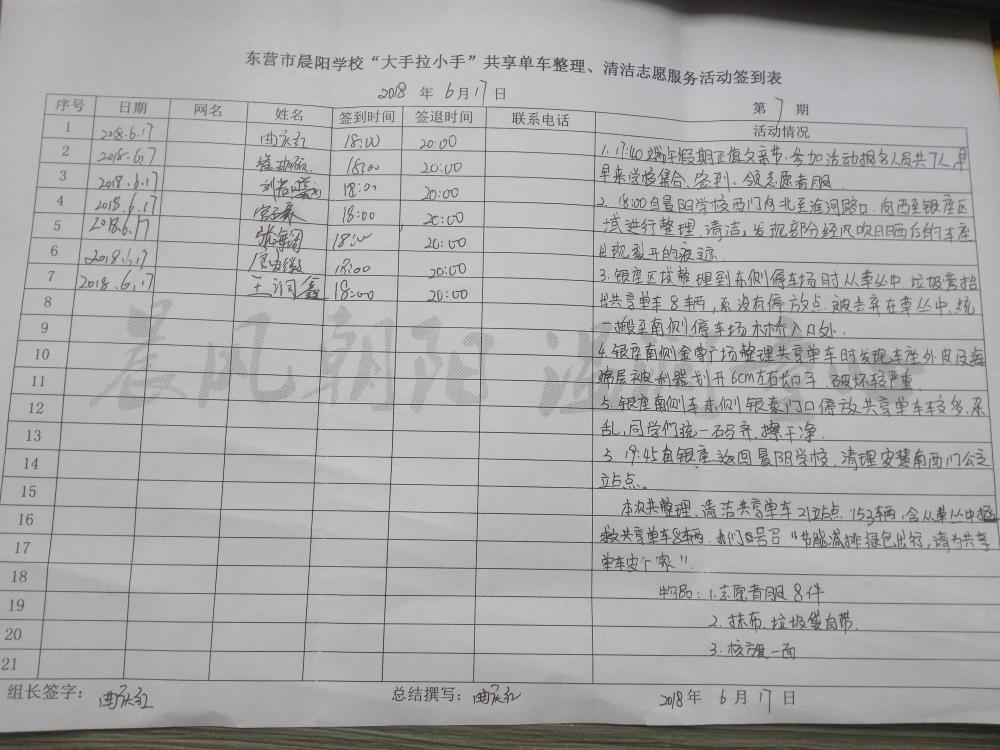 东营市晨阳学校“大手拉小手”共享单车整理、清洁志愿服务活动签到表
2018 年 6月17日
第 7 期
序号 日期 网名 姓名 签到时间 签退时间 联系电话 活动情况
1 2018.6.17 曲庆红 18:00 20:00
2 2018.6.17 18:00 20:00
3 2018.6.17 18:00 20:00
4 2018.6.17 18:00 20:00
5 2018.6.17 18:00 20:00
6 2018.6.17 18:00 20:00
7 2018.6.17 王润鑫 18:00 20:00
8
9
10
11
12
13
14
15
16
17
18
19
20
21
1. 17:40 端午假期正值父亲节.参加活动报名人员共7人,早
早来学校集合、签到、领志愿者服.
2. 18:00自晨阳学校西门向北至淮河路口.向西至银座区
域进行整理、清洁,发现部分经风吹日晒后的车座
出现裂开的痕迹.
3.银座区域整理到东侧停车场时从草丛中.垃圾旁抬
出共享单车8辆,系没有停放点.被丢弃在草丛中,统
一搬至南侧停车场林荫入口处.
4.银座南侧金雷广场整理共享单车时发现车座外皮及海
绵层被利器划开6cm左右口子.破坏较严重.
5.银座南侧车东侧银泰门口停放共享单车较多,杂
乱,同学们统一码齐.擦干净.
3. 19:45自银座返回晨阳学校.清理安慧南西门公交
站点。
本次共整理、清洁共享单车21站点.153辆,含从草丛中拯
救共享单车8辆.我们口号召“节能减排绿色出行,请为共享
单车安个家”.
物品:1.志愿者服8件
2.抹布.垃圾袋自带.
3.校旗一面
晨风朝阳
组长签字: 曲庆红 总结撰写: 曲庆红 2018年 6月17日